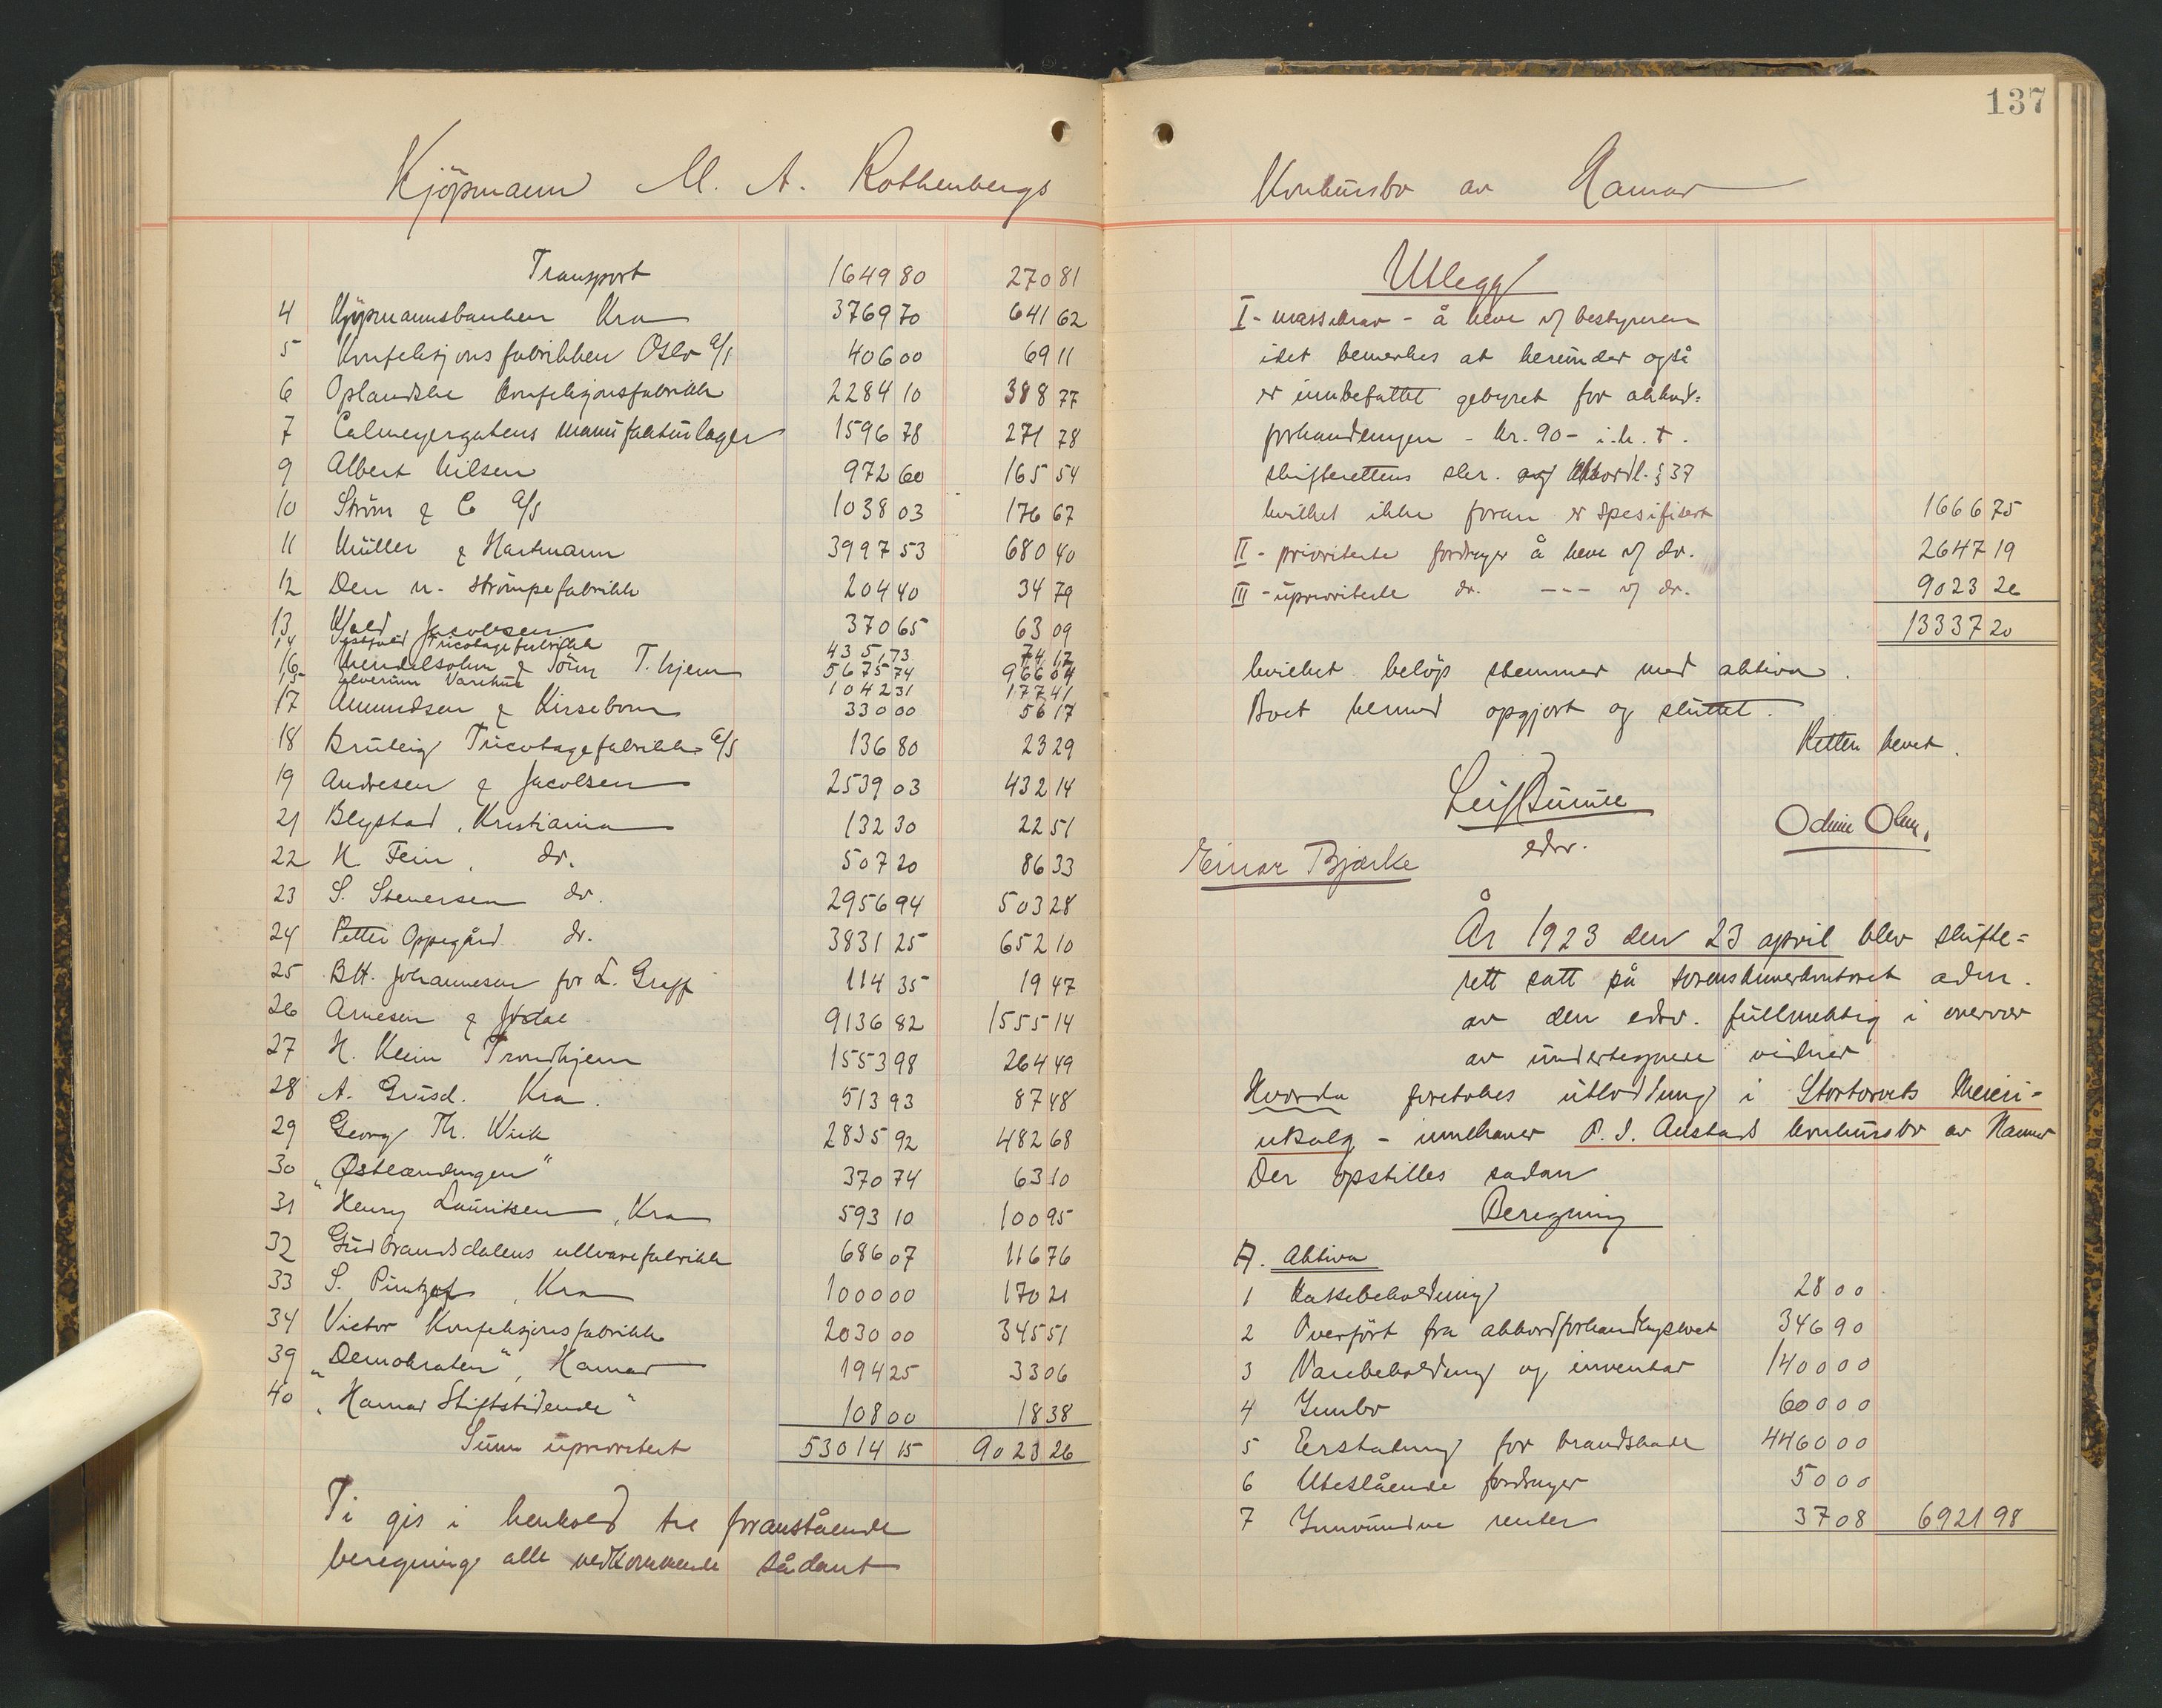 137
Kjöpmann M. A. Rothenbergs
Konkursbo av Hamar
Transport 1649 80 270 81
4 Kjöpmannsbanken Kra 3769 70 641 62
5 Konfeksjonsfabrikken Oslo A/S 406 00 69 11
6 Oplandske konfeksjonsfabrikk 2284 10 388 77
7 Calmeyergatens manufakturlager 1596 78 271 78
9 Albert Nilsen 972 60 165 54
10 Ström & Co A/S 1038 03 176 67
11 Müller & Hartmann 3997 53 680 40
12 Den n. strömpefabrikk 204 40 34 79
13 Wald Jacobsen 370 65 63 09
14 Östfold Tricotagefabrikk 435,73 74 17
16 Mendelsohn & Sönn T.hjem 5675 74 966 04
15 Elverum Varehus 1042 31 177 41
17 Amundsen & Kirsebom 330 00 56 17
18 Bruleig Tricotagefabrikk A/S 136 80 23 29
19 Andresen & Jacobsen 2539 03 432 14
21 Blystad, Kristiania 132 30 22 51
22 H Fein, do. 507 20 86 33
23 S. Stenersen do. 2956 94 503 28
24 Petter Oppegård do. 3831 25 652 10
25 B.H. Johannesen for L. Greff 114 35 19 47
26 Arnesen & Jödal 9136 82 1555 14
27 H. Klein Trondhjem 1553 98 264 49
28 A. Grusd. Kra. 513 93 87 48
29 Georg Th. Wiik 2835 92 482 68
30 "Østlændingen" 370 74 63 10
31 Henry Lauritsen, Kra 593 10 100 95
32 Gudbrandsdalens ullvarefabrikk 686 07 116 76
33 S. Pintzof, Kra 1000 00 170 21
34 Victor Konfeksjonsfabrikk 2030 00 345 51
39 "Demokraten", Hamar 194 25 33 06
40 "Hamar Stiftstidende" 108 00 18 38
Sum uprioritert 53014 15 9023 26
Ti gis i henhold til foranstående
beregning alle vedkommende sådant
Utlegg
I - massekrav - å heve v/ bestyreren
idet bemerkes at herunder også
er innbefattet gebyret for akkord=
forhandlingen - kr. 90 - i.h.t.
skifterettens skr. av akkordl. § 37
hvilket ikke foran er spesifisert 1666 75
II - prioriterte fordringer å heve v/ do. 2647 19
III - uprioriterte do. --- v/ do. 9023 26
13337 20
hvilket belöp stemmer med aktiva.
Boet hermed opgjort og sluttet.
Retten hevet.
Leif Bumle
edsv.
Odin Olsen,
Einar Bjærke
År 1923 den 23 april blev skifte=
rett satt på sorenskriverkontoret adm.
av den edsv. fullmektig i overvær
av undertegnede vidner
Hvorda foretokes utlodning i Stortorvets Meieri-
utsalg - innehaver P. I. Austads konkursbo av Hamar
Der opstilles sådan
Beregning
A. Aktiva
1 Kassebeholdning 28 00
2 Overfört fra akkordforhandlingsboet 346 90
3 Varebeholdning og inventar 1400 00
4 Innbo 600 00
5 Erstatning for brandskade 4460 00
6 Utestående fordringer 50 00
7 Innvundne renter 37 08 6921 98